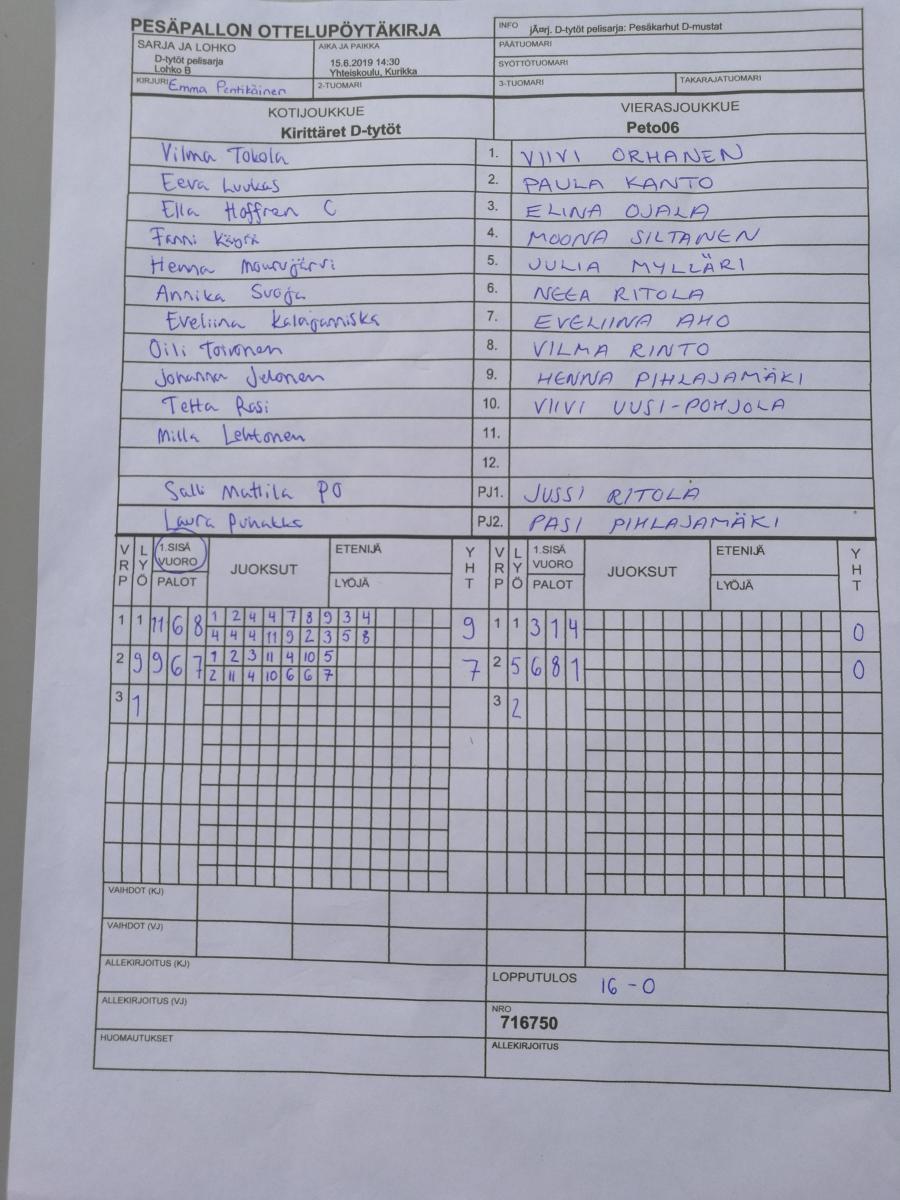 PESÄPALLON OTTELUPÖYTÄKIRJA
INFO jÃ¤rj. D-tytöt pelisarja: Pesäkarhut D-mustat
SARJA JA LOHKO
D-tytöt pelisarja
Lohko B
AIKA JA PAIKKA
15.6.2019 14:30
Yhteiskoulu, Kurikka
PÄÄTUOMARI
SYÖTTÖTUOMARI
KIRJURI Emma Pentikäinen
2-TUOMARI
3-TUOMARI
TAKARAJATUOMARI
KOTIJOUKKUE
Kirittäret D-tytöt
VIERASJOUKKUE
Peto06
Vilma Tokola 1. VIIVI ORHANEN
Eeva Luukas 2. PAULA KANTO
Ella Hoffren C 3. ELINA OJALA
Fanni Käyrä 4. MOONA SILTANEN
Henna Mourujärvi 5. JULIA MYLLÄRI
Annika Suoja 6. NEEA RITOLA
Eveliina Kalajanniska 7. EVELIINA AHO
Oili Toivonen 8. VILMA RINTO
Johanna Jelonen 9. HENNA PIHLAJAMÄKI
Tetta Rasi 10. VIIVI UUSI-POHJOLA
Milla Lehtonen 11.
12.
Salli Mattila PO PJ1. JUSSI RITOLA
Laura Punakka PJ2. PASI PIHLAJAMÄKI
VRP LYÖ 1.SISÄ VUORO PALOT JUOKSUT ETENIJÄ LYÖJÄ YHT VRP LYÖ 1.SISÄ VUORO PALOT JUOKSUT ETENIJÄ LYÖJÄ YHT
1 1 11 6 8 1 2 4 4 7 8 9 3 4 9 1 1 3 1 4 0
4 4 4 11 9 2 3 5 8
2 9 9 6 7 1 2 3 11 4 10 5 7 2 5 6 8 1 0
2 11 4 10 6 6 7
3 1 3 2
VAIHDOT (KJ)
VAIHDOT (VJ)
ALLEKIRJOITUS (KJ)
LOPPUTULOS 16 - 0
ALLEKIRJOITUS (VJ)
NRO
716750
HUOMAUTUKSET
ALLEKIRJOITUS